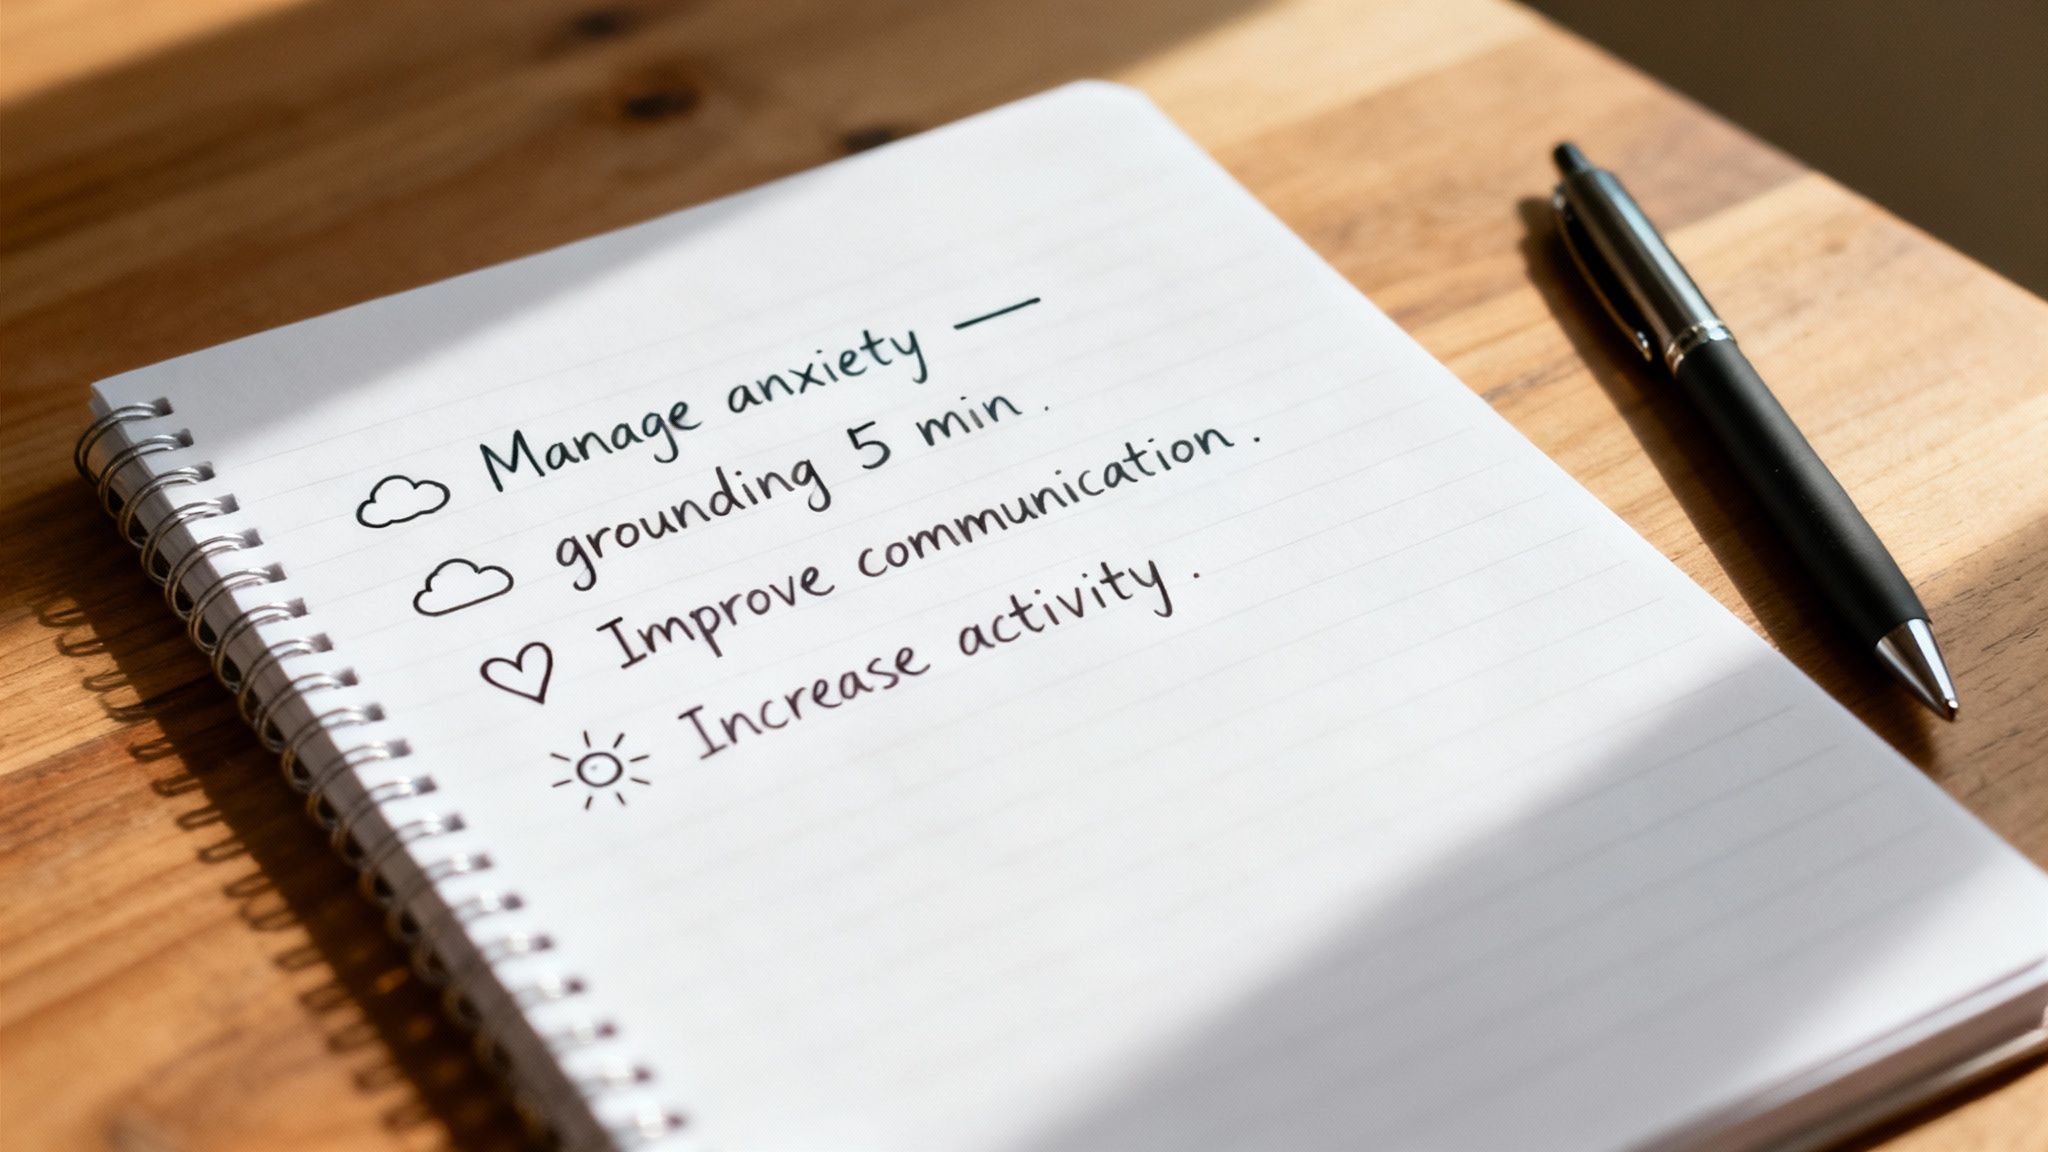 Manage anxiety —
grounding 5 min.
Improve communication.
Increase activity.